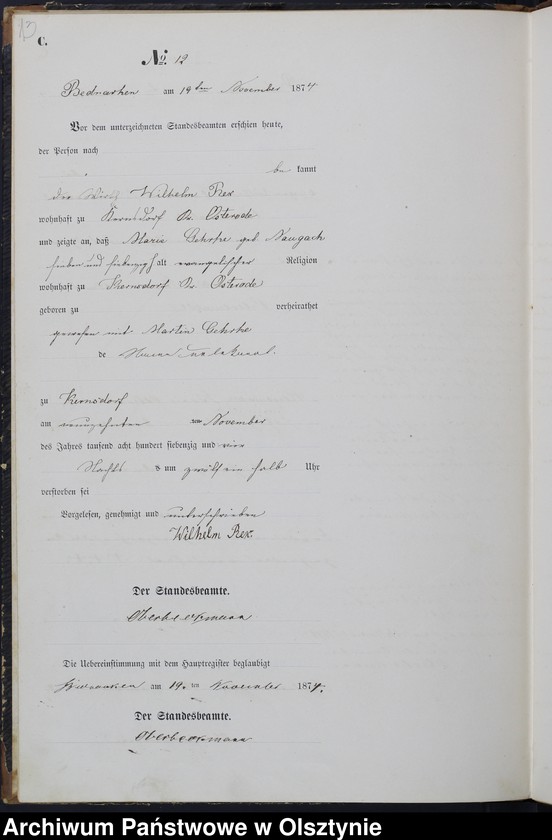 13
C.
No. 12
Bednarken am 19ten November 1874
Vor dem unterzeichneten Standesbeamten erschien heute,
der Person nach
be kannt
Wilhelm Rex
wohnhaft zu Kernsdorf Kr. Osterode
und zeigte an, daß Marie Gehrke geb. Naugach
sieben und siebenzig alt evangelischer Religion
wohnhaft zu Kernsdorf Kr. Osterode
geboren zu verheirathet
gewesen mit Martin Gehrke
de
zu Kernsdorf
am neunzehnten November
des Jahres tausend acht hundert siebenzig und vier
Nachts um zwölf ein halb Uhr
verstorben sei
Vorgelesen, genehmigt und unterschrieben
Wilhelm Rex.
Der Standesbeamte.
Oberbeckmann
Die Uebereinstimmung mit dem Hauptregister beglaubigt
Bednarken am 19.ten November 1874.
Der Standesbeamte.
Oberbeckmann
Archiwum Państwowe w Olsztynie